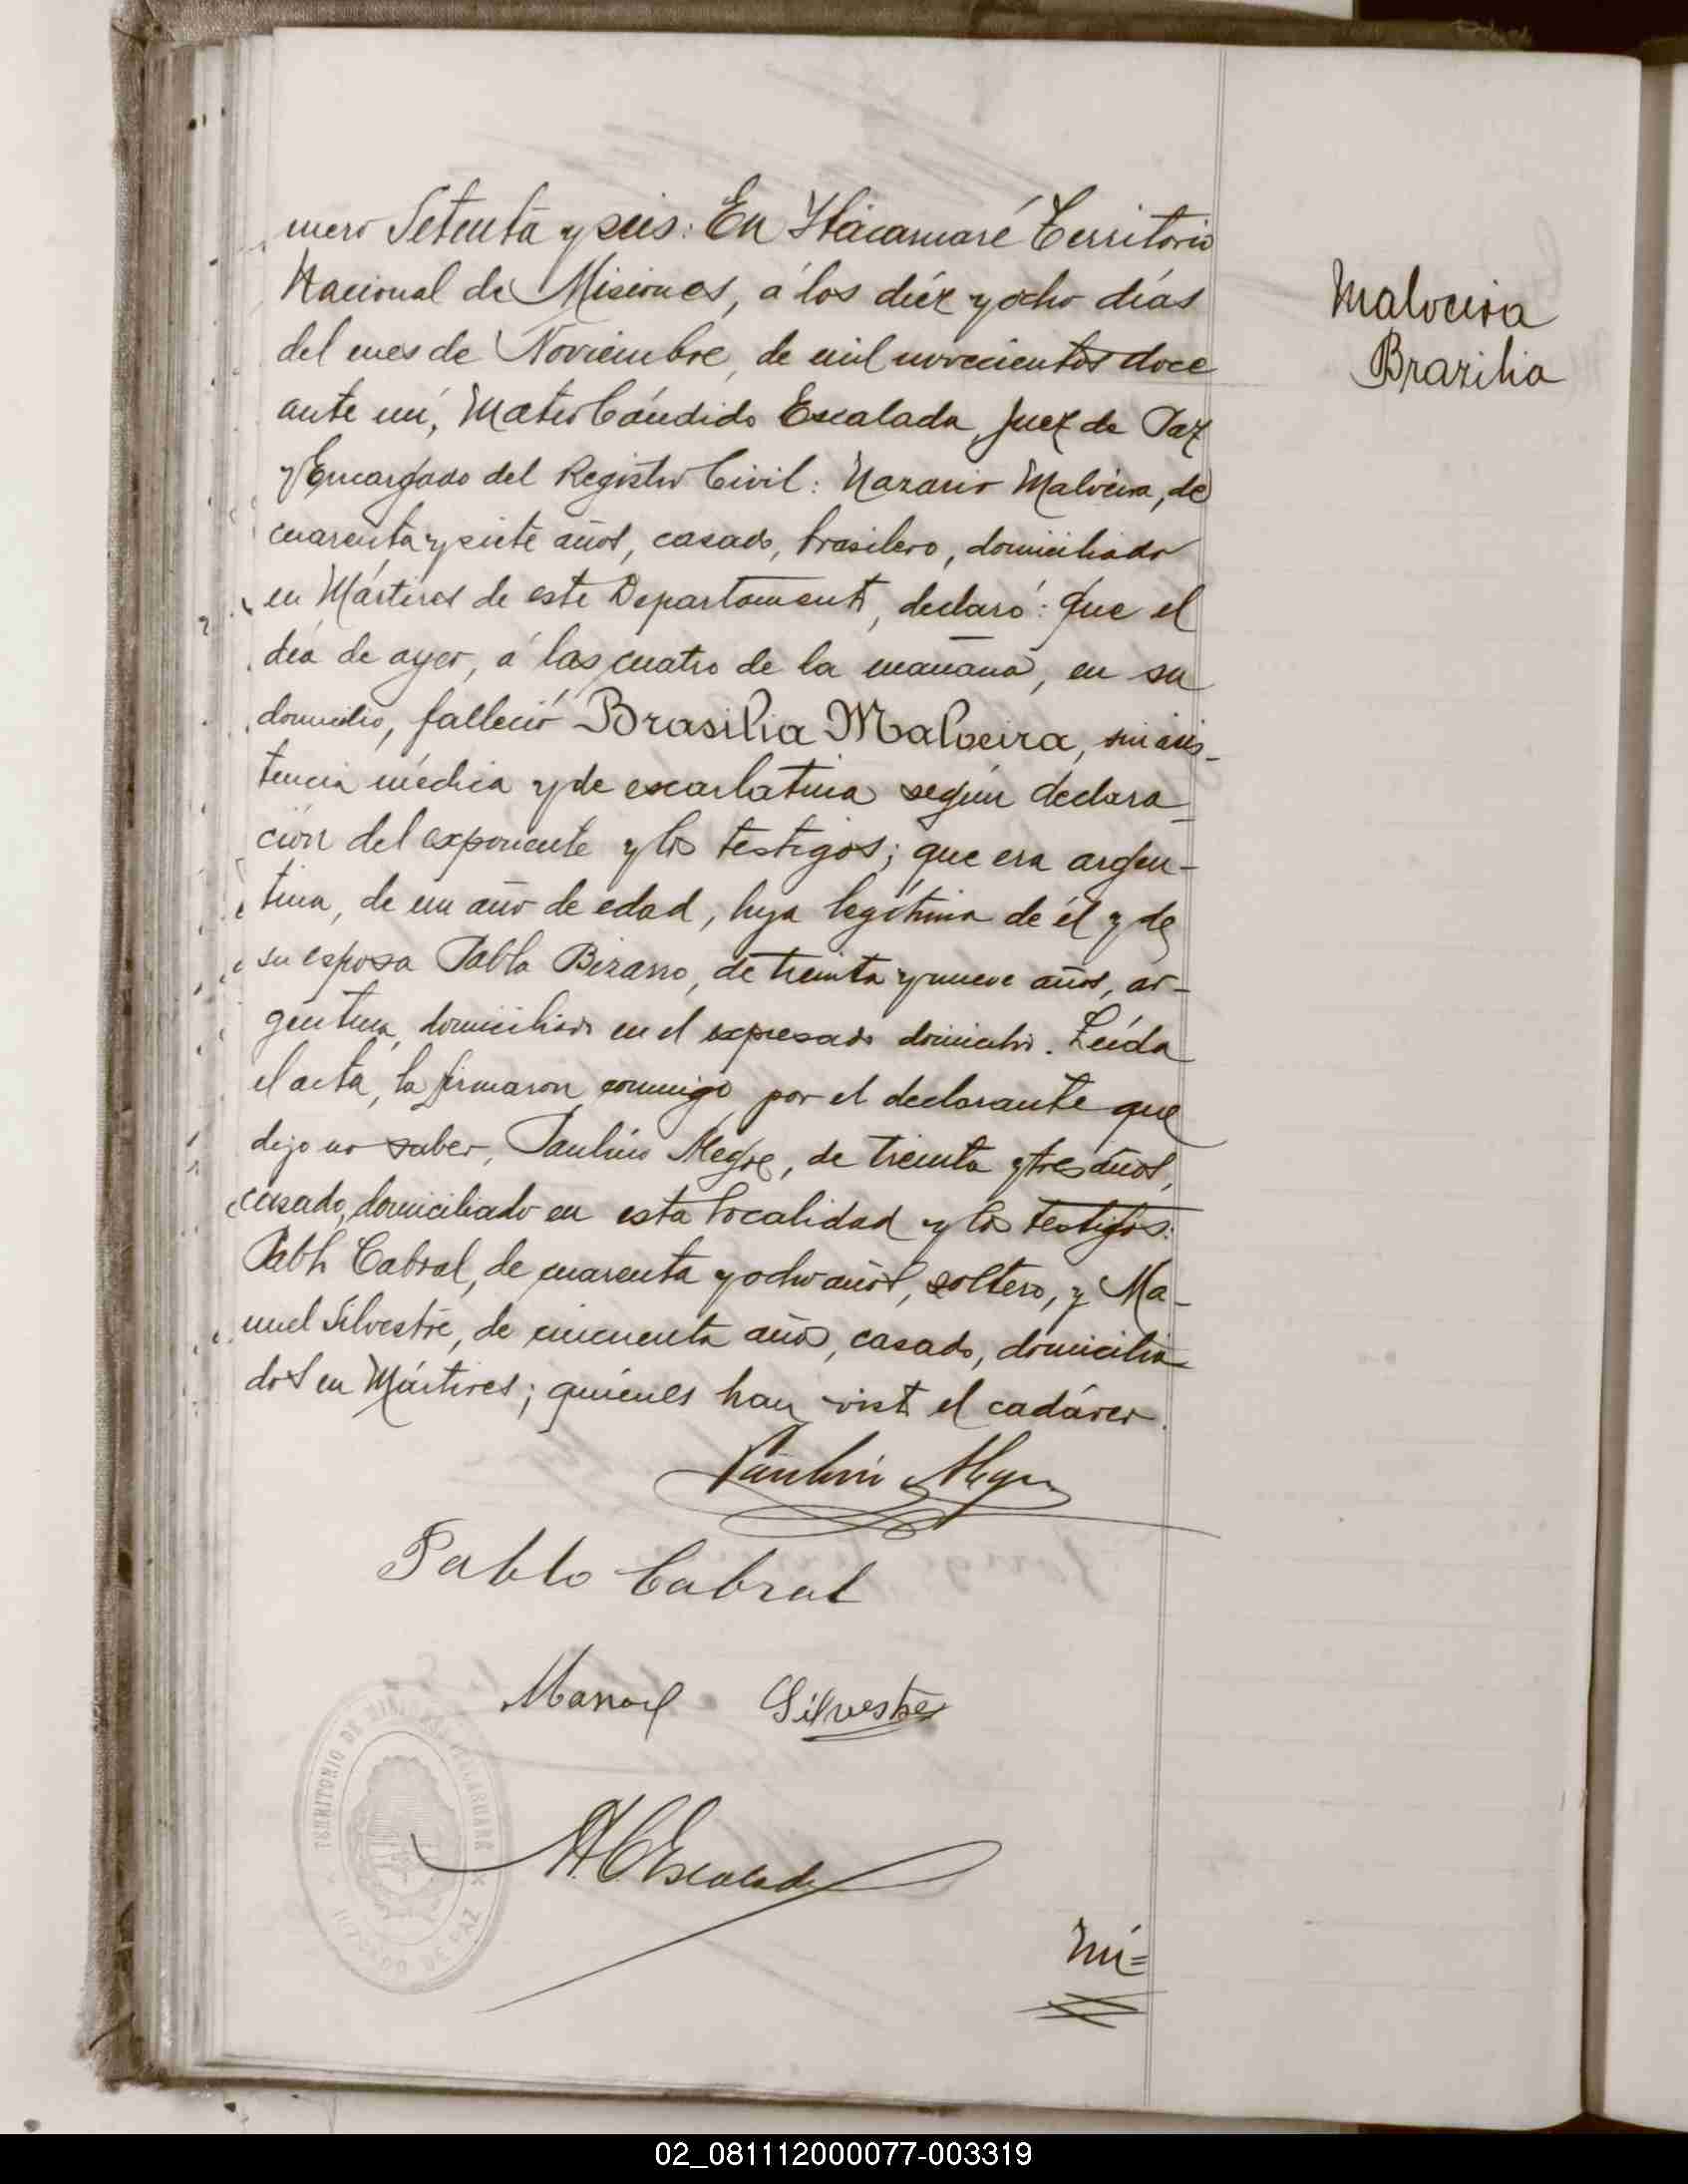 mero Setenta y seis: En Itacaruaré Territorio
Nacional de Misiones, á los diéz y ocho días
del mes de Noviembre, de mil novecientos doce
ante mí, Mateo Cándido Escalada, Juez de Paz
y Encargado del Registro Civil: Nazario Malveira, de
cuarenta y siete años, casado, brasilero, domiciliado
en Mártires de este Departamento, declaró: Que el
día de ayer, á las cuatro de la mañana, en su
domicilio, falleció Brasilia Malveira, sin asis-
tencia médica y de escarlatina según declara-
ción del exponente y los testigos; que era argen-
tina, de un año de edad, hija legítima de él y de
su esposa Pabla Bizarro, de treinta y nueve años, ar-
gentina, domiciliada en el expresado domicilio. Leída
el acta, la firmaron conmigo por el declarante que
dijo no saber, Paulino Alegre, de treinta y tres años,
casado, domiciliado en esta localidad y los testigos:
Pablo Cabral, de cuarenta y ocho años, soltero, y Ma-
nuel Silvestre, de cincuenta años, casado, domicilia-
dos en Mártires; quiénes han visto el cadáver.
Paulino Alegre
Pablo Cabral
Manoel Silvestre
M. C. Escalada
TERRITORIO DE MISIONES ITACARUARÉ
JUZGADO DE PAZ
Nú=
Malveira
Brazilia
02_081112000077-003319